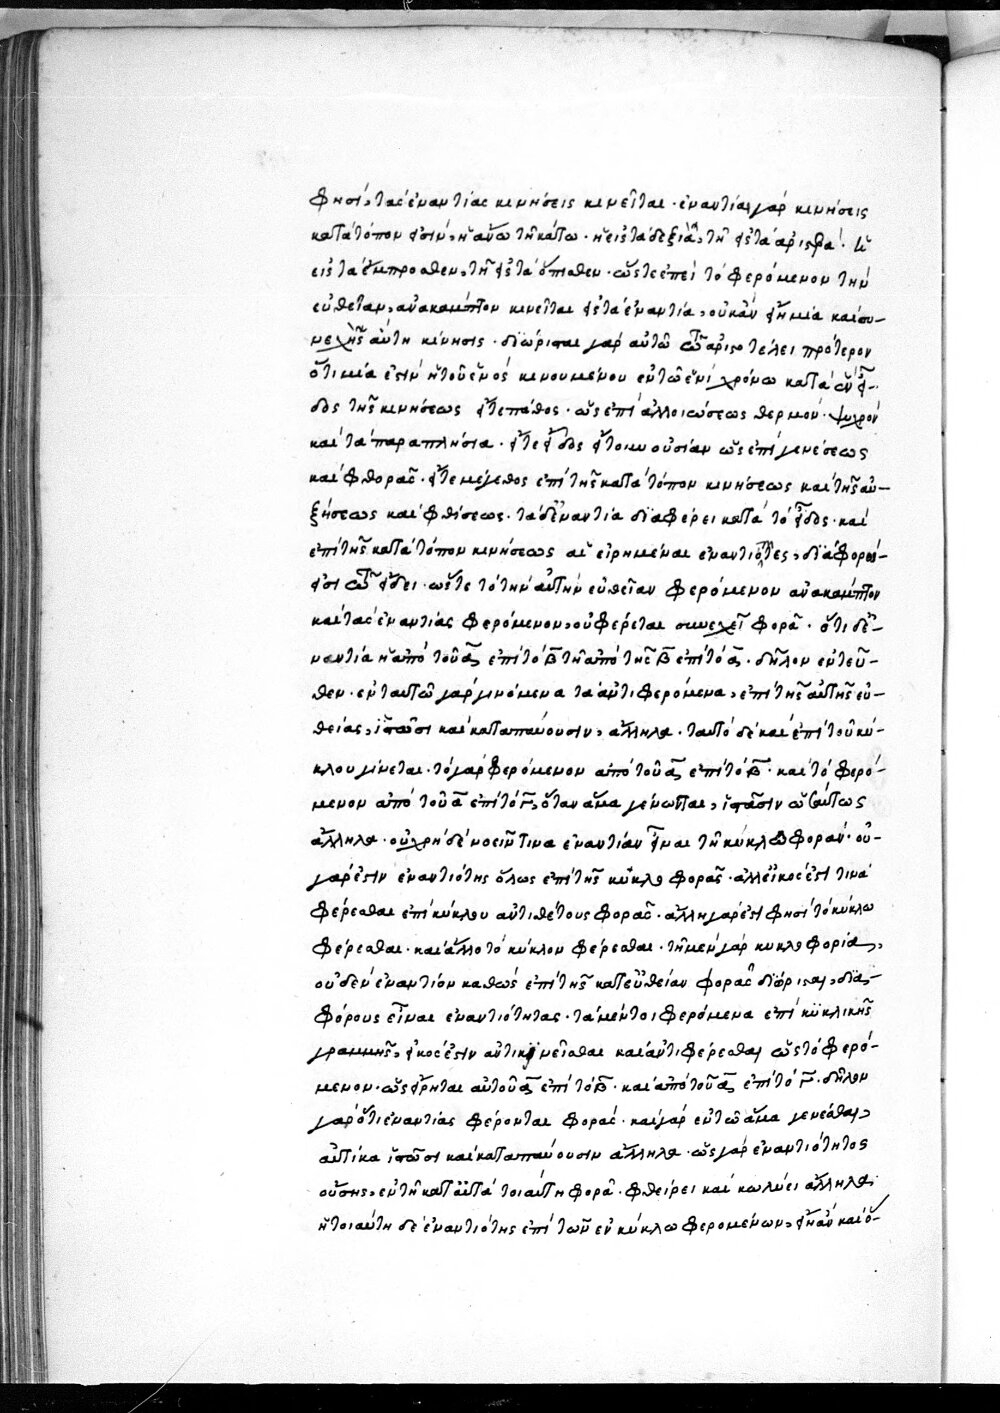 φησί, τὰς ἐναντίας κινήσεις κινεῖται· ἐναντίαι γὰρ κινήσεις
κατὰ τόπον εἰσὶν, ἡ ἄνω τῇ κάτω· ἡ εἰς τὰ δεξιὰ, τῇ εἰς τὰ ἀριστερά· ἡ
εἰς τὰ ἔμπροσθεν, τῇ εἰς τὰ ὄπισθεν· ὥστε ἐπεὶ τὸ φερόμενον τὴν
εὐθεῖαν, ἀνακαμπτον κινεῖται εἰς τὰ ἐναντία, οὐκ ἂν εἴη μία καὶ συ-
νεχὴς αὕτη κίνησις· διώρισται γὰρ αὐτῷ τῷ ἀριστοτέλει πρότερον
ὅτι μία ἐστὶν ἡ τοῦ ἑνὸς κινουμένου ἐν τῷ ἑνὶ χρόνω κατὰ ἓν εἶ-
δος τῆς κινήσεως εἴτε πάθος· ὡς ἐπὶ ἀλλοιώσεως θερμὸν· ψυχρὸν
καὶ τὰ παραπλήσια· εἴτε εἶδος εἴτουν οὐσίαν ὡς ἐπὶ γενέσεως
καὶ φθορᾶς· εἴτε μέγεθος ἐπὶ τῆς κατὰ τόπον κινήσεως καὶ τῆς αὐ-
ξήσεως καὶ φθίσεως· τὰ δ' ἐναντία διαφέρει κατὰ τὸ εἶδος· καὶ
ἐπὶ τῆς κατὰ τόπον κινήσεως αἱ εἰρημέναι ἐναντιότητες, διάφοραί
εἰσι τῷ εἴδει· ὥστε τὸ τὴν αὐτὴν εὐθεῖαν φερόμενον ἀνακαμπτον
καὶ τὰς ἐναντίας φερόμενον, οὐ φέρεται συνεχεῖ φορᾷ· ὅτι δ' ἐ-
ναντία ἡ ἀπὸ τοῦ α ἐπὶ τὸ β τῇ ἀπὸ τῆς β ἐπὶ τὸ α· δῆλον ἐντεῦ-
θεν· ἐν ταυτῷ γὰρ γινόμενα τὰ ἀντιφερόμενα, ἐπὶ τῆς αὐτῆς εὐ-
θείας, ἱστῶσι καὶ καταπαύουσιν, ἄλληλα· ταυτὸ δὲ καὶ ἐπὶ τοῦ κύ-
κλου γίνεται· τὸ γὰρ φερόμενον ἀπὸ τοῦ α ἐπὶ τὸ β· καὶ τὸ φερό-
μενον ἀπὸ τοῦ α ἐπὶ τὸ γ, ὅταν ἅμα γένωνται, ἱστᾶσιν ὡσαύτως
ἄλληλα· οὐ χρὴ δὲ νοεῖν τινα ἐναντίαν εἶναι τῇ κύκλω φορὰν· οὐ
γάρ ἐστιν ἐναντιότης ὅλως ἐπὶ τῆς κύκλω φορᾶς· ἀλλ' εἰκός ἐστί τινα
φέρεσθαι ἐπὶ κύκλου ἀντιθέτους φορᾶς· ἄλλη γάρ ἐστι φησὶ τὸ κύκλω
φέρεσθαι· καὶ ἄλλο τὸ κύκλον φέρεσθαι· τῇ μὲν γὰρ κυκλοφορία,
οὐδὲν ἐναντίον καθὼς ἐπὶ τῆς κατ' εὐθείαν φορᾶς διώρισται, δια-
φόρους εἶναι ἐναντιότητας· τὰ μέντοι φερόμενα ἐπὶ κυκλικῆς
γραμμῆς, εἰκός ἐστιν ἀντικινεῖσθαι καὶ ἀντιφέρεσθαι ὡς τὸ φερό-
μενον· ὡς εἴρηται ἀπὸ τοῦ α ἐπὶ τὸ β· καὶ ἀπὸ τοῦ α ἐπὶ τὸ γ· δῆλον
γὰρ ὅτι ἐναντίας φέρονται φοράς· καὶ γὰρ ἐν τῷ ἅμα γενέσθαι,
αὐτίκα ἱστῶσι καὶ καταπαύουσιν ἄλληλα· ὡς γὰρ ἐναντιότητος
οὔσης, ἐν τῇ κατὰ ταῦτα τοιαύτη φορᾷ· φθείρει καὶ κωλύει ἄλληλα·
ἡ τοιαύτη δὲ ἐναντιότης ἐπὶ τῶν ἐν κύκλω φερομένων, εἴη ἂν καὶ ὁ-